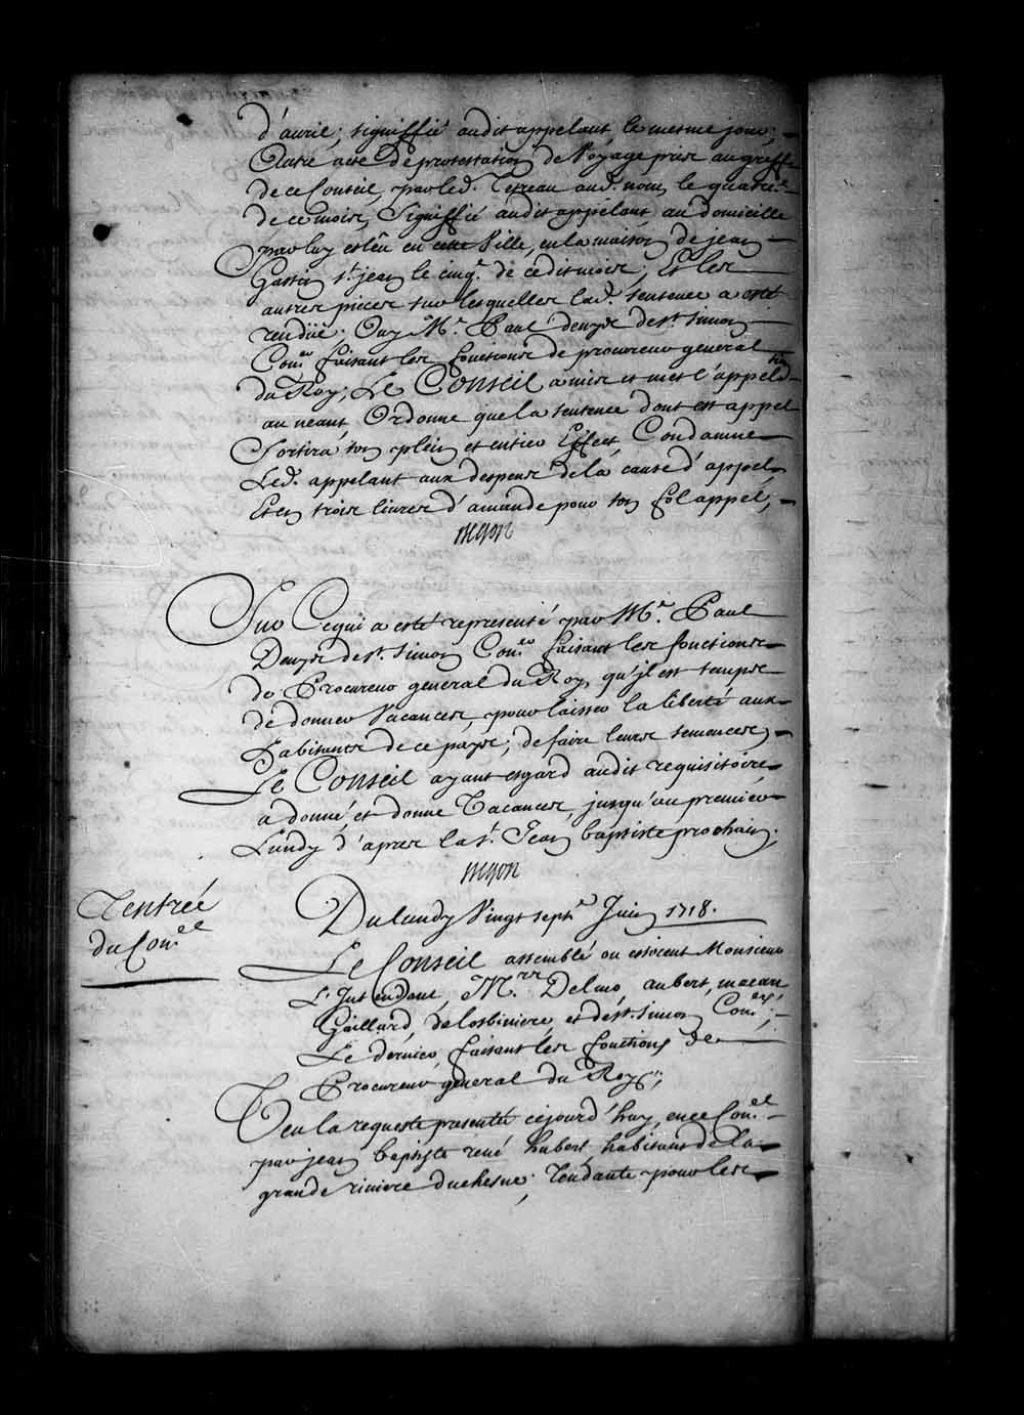 d'avril, signiffié audit appelant le mesme jour,
Autre acte de protestation de Voyage prise au greffe
de ce Conseil, par led. Tetreau aud. nom, le quatre.
de ce mois, Signiffié audit appelant au domicille
par luy eslëu en cette Ville, en la maison de jean
Gastin st. jean le cinq.e de cedit mois, Et les
autres pieces sur lesquelles lad. sentence a esté
rendüe. Ouy Mr. Paul denys de st. simon
Con.er faisant les fonctions de procureur general
du Roy; Le Conseil a mis et met l'appel
au neant, Ordonne que la sentence dont est appel
Sortira son plein et entier Effect, Condamne
Led. appelant aux despens de la cause d'appel,
Et en trois livres d'amande pour son fol appel,
Begon
Sur Ce qui a esté representé par Mr. Paul
Denys de st. simon Con.er faisant les fonctions
de Procureur general du Roy, qu'jl est temps
de donner Vacances, pour laisser la liberté aux
habitants de ce pays, de faire leurs semences,
Le Conseil ayant esgard audit requisitoire
a donné, et donne Vacances, jusqu'au premier
Lundy d'apres la st. Jean baptiste prochain.
Begon
Rentrée
du Con.el
Du lundy Vingt sept.e Juin 1718.
Le Conseil assemblé ou estoient Monsieur
L'Jntendant, M.rs Delino, aubert, macart
Gaillard, de lotbiniere, et de st. simon Con.ers,
Le dernier faisant les fonctions de
Procureur general du Roy;
Veu la requeste presentée cejourd'huy, en ce Con.el
par jean baptiste rené hubert, habitant de la
grande riviere duchesne, Tendante pour les